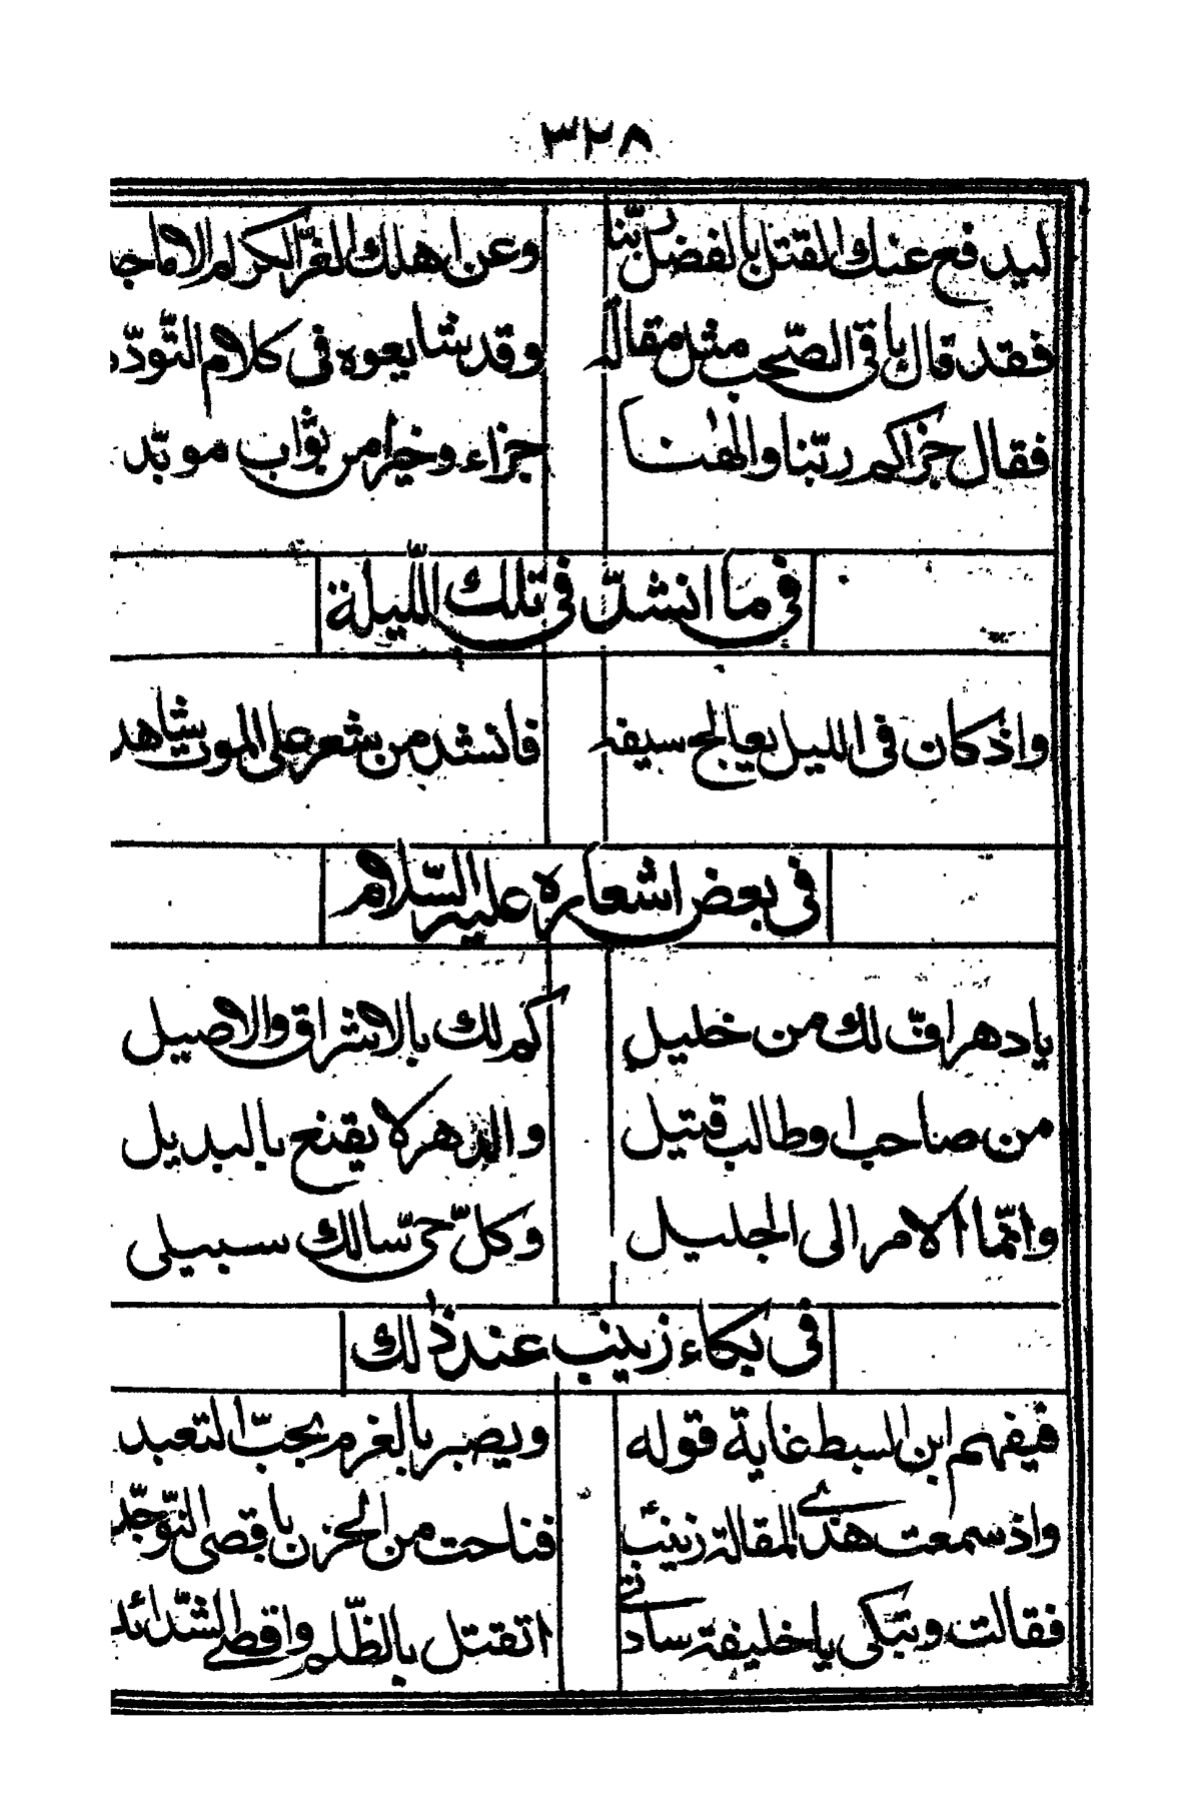 ٣٢٨
ليدفع عنك القتل بالفضل ربّنا وعن اهلك الغرّ الكرام الاماجد
فقد قال باقی الصّحب مثل مقاله وقد شايعوه فی كلام التّودّد
فقال جزاكم ربّنا والٰهنا جزاء وخيرا من ثوّاب موبّد
فی ما انشدّ فی تلك اللّيلة
واذ كان فی الليل يعالج سيفه فانشد من شعر علی الموت شاهد
فی بعض اشعاره عليه السّلام
يا دهر افّ لك من خليل كم لك بالاشراق والاصيل
من صاحب او طالب قتيل والدهر لا يقنع بالبديل
وانّما الامر الی الجليل وكلّ حیّ سالك سبيلی
فی بكاء زينب عند ذٰلك
فيفهم ابن السبط غاية قوله ويصبر بالغرم بحبّ التعبد
واذ سمعت هذی المقالة زينب فناحت من الحزن باقصی التّوجّد
فقالت وتبكی يا خليفة سادتی اتقتل بالظّلم واقطی الشّدائد